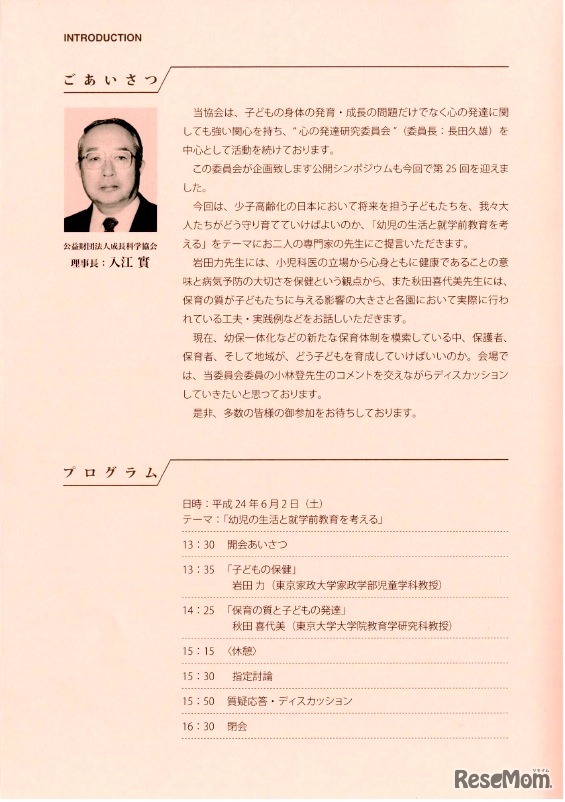 INTRODUCTION
ごあいさつ
公益財団法人成長科学協会
理事長：入江 實
当協会は、子どもの身体の発育・成長の問題だけでなく心の発達に関
しても強い関心を持ち、“心の発達研究委員会”（委員長：長田久雄）を
中心として活動を続けております。
この委員会が企画致します公開シンポジウムも今回で第25回を迎えま
した。
今回は、少子高齢化の日本において将来を担う子どもたちを、我々大
人たちがどう守り育てていけばよいのか、「幼児の生活と就学前教育を考
える」をテーマにお二人の専門家の先生にご提言いただきます。
岩田力先生には、小児科医の立場から心身ともに健康であることの意
味と病気予防の大切さを保健という観点から、また秋田喜代美先生には、
保育の質が子どもたちに与える影響の大きさと各園において実際に行わ
れている工夫・実践例などをお話しいただきます。
現在、幼保一体化などの新たな保育体制を模索している中、保護者、
保育者、そして地域が、どう子どもを育成していけばいいのか。会場で
は、当委員会委員の小林登先生のコメントを交えながらディスカッション
していきたいと思っております。
是非、多数の皆様の御参加をお待ちしております。
プログラム
日時：平成24年6月2日（土）
テーマ：「幼児の生活と就学前教育を考える」
13：30 開会あいさつ
13：35 「子どもの保健」
岩田 力（東京家政大学家政学部児童学科教授）
14：25 「保育の質と子どもの発達」
秋田 喜代美（東京大学大学院教育学研究科教授）
15：15 〈休憩〉
15：30 指定討論
15：50 質疑応答・ディスカッション
16：30 閉会
リセマム
ReseMom.